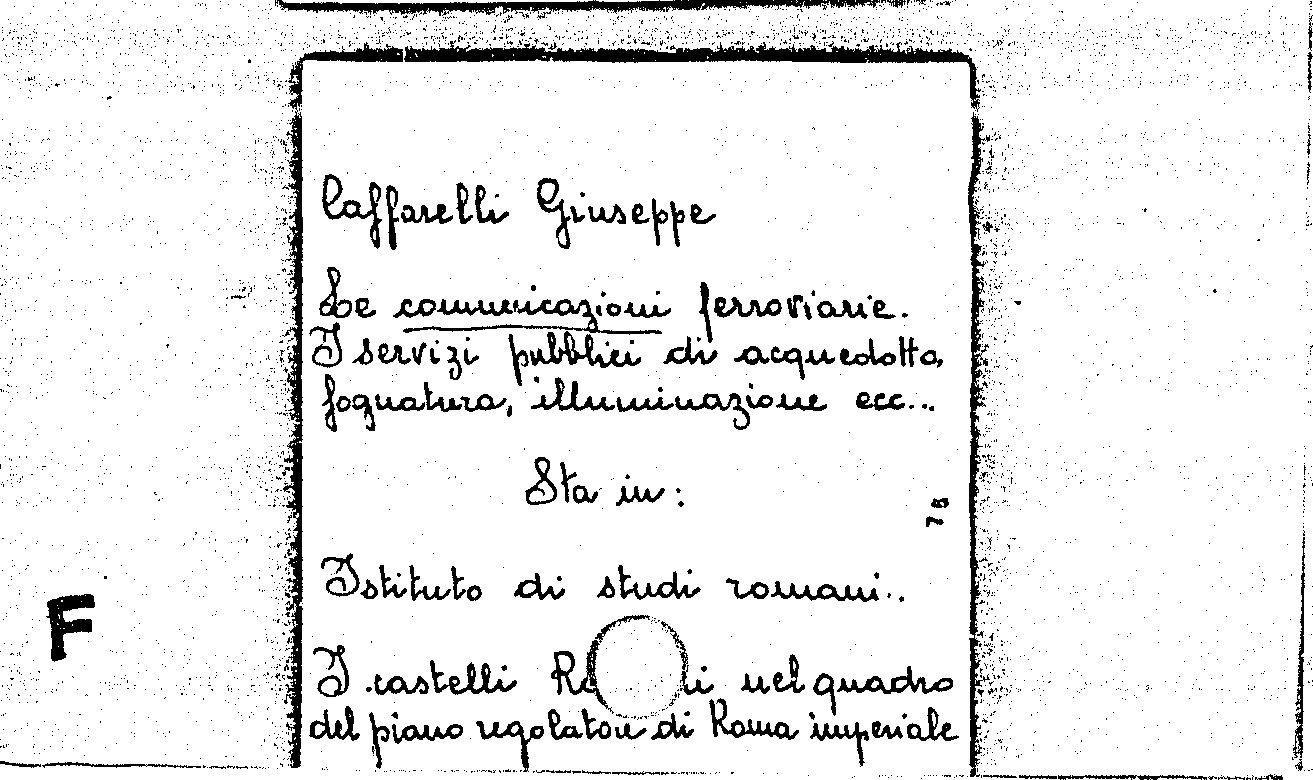 Caffarelli Giuseppe
Le comunicazioni ferroviarie.
I servizi pubblici di acquedotto,
fognatura, illuminazione ecc...
Sta in:
78
Istituto di studi romani..
F
I castelli Ro i nel quadro
del piano regolatore di Roma imperiale